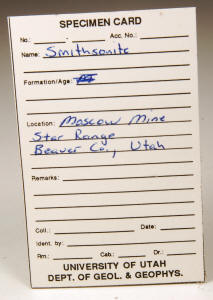 SPECIMEN CARD
No.: - Acc. No.:
Name: Smithsonite
Formation/Age:
Location: Moscow Mine
Star Range
Beaver Co., Utah
Remarks:
Coll.: Date:
Ident. by:
Rm.: Cab.: Dr.:
UNIVERSITY OF UTAH
DEPT. OF GEOL. & GEOPHYS.